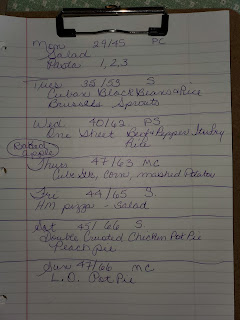 Mon 29/45 PC
Salad
Pasta 1,2,3
Tues 35/53 S
Cuban Black Beans & Rice
Brussels Sprouts
Wed 40/62 PS
One Sheet Beef & Pepper Stirfry
Rice
Baked
Apple
Thurs 47/63 MC
Cube Stk, Corn, mashed Potatoes
Fri 44/65 S
HM pizza - Salad
Sat 45/66 S
Double Crusted Chicken Pot Pie
Peach pie
Sun 47/66 MC
L.O. Pot Pie